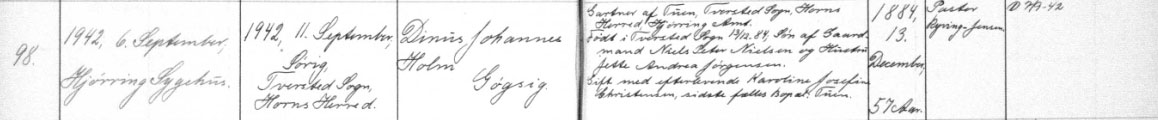 98.
1942, 6. September,
Hjörring Sygehus.
1942, 11. September,
Sörig,
Tversted Sogn,
Horns Herred.
Dinus Johannes
Holm
Gögsig.
Gartner af Tuen, Tversted Sogn, Horns
Herred, Hjörring Amt.
Födt i Tversted Sogn 13/12.84, Sön af Gaard-
mand Niels Peter Nielsen og Hustru
Jette Andrea Jörgensen.
Gift med efterlevende Karoline Josefine
Christensen, sidste fælles Bopæl: Tuen.
1884,
13.
December,
57 Aar.
Pastor
Ryring-Jensen